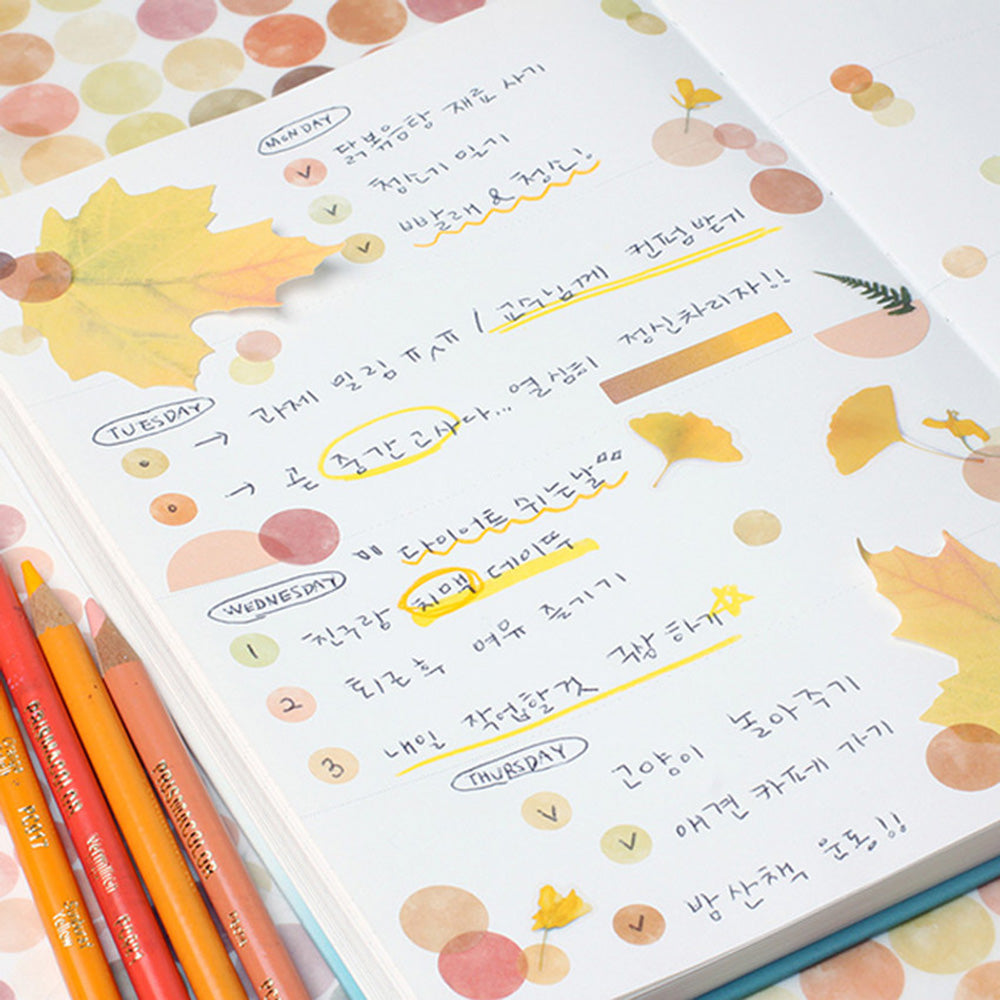 MONDAY
v 닭볶음탕 재료 사기
v 청소기 밀기
v 빨래 & 청소!
TUESDAY
→ 과제 밀림 ㅠㅅㅠ / 교수님께 컨펌받기
→ 곧 중간고사다... 열심히 정신차리자!!
다이어트 쉬는날
WEDNESDAY
1 친구랑 치맥 데이뚜
2 퇴근 후 여유 즐기기
3 내일 작업할것 구상 하기
THURSDAY
v 고양이 놀아주기
v 애견 카페 가기
v 밤 산책 운동!!
PRISMACOLOR
PRISMACOLOR
PC917
Sunburst Yellow
Vermilion